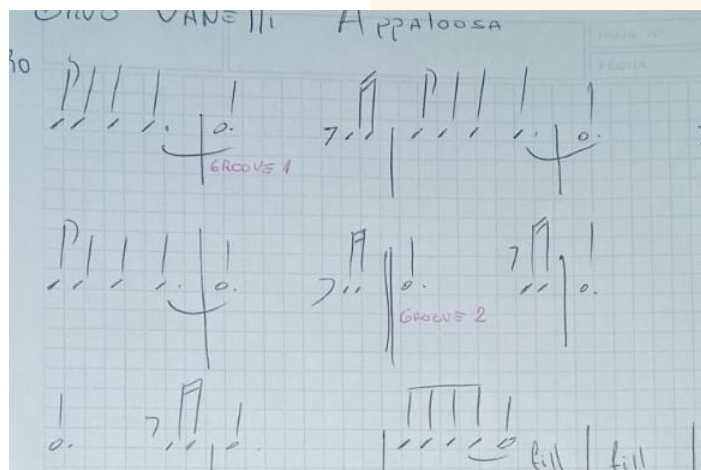 VANElli APPALOOSA
HOJA Nº
FECHA
GROOVE 1
GROOVE 2
fill fill